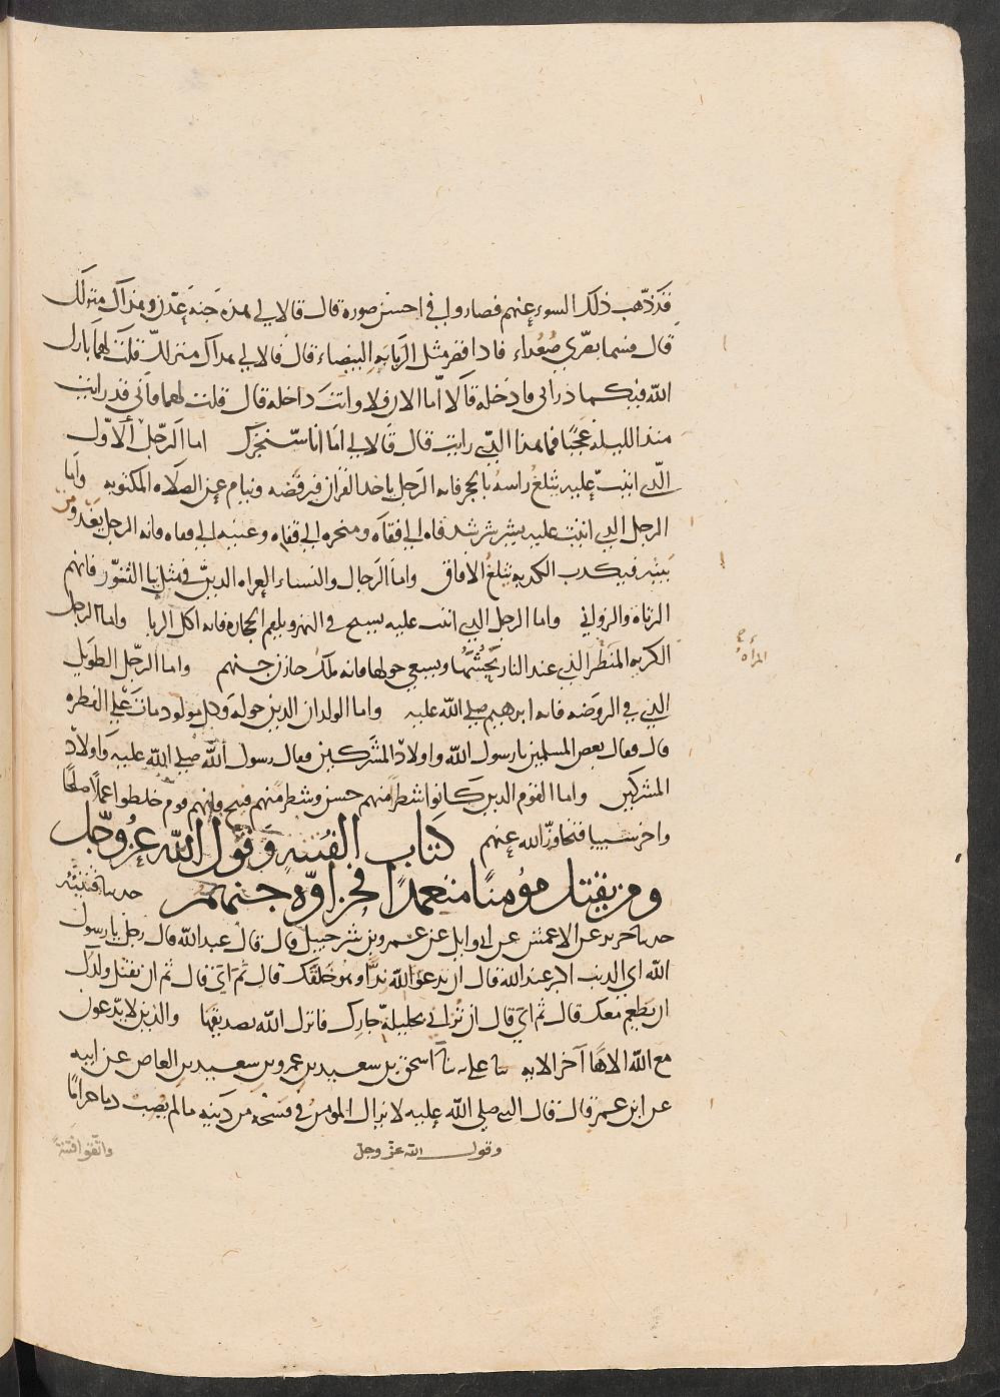 قد ذهب ذلك السوء عنهم فصاروا في احسن صورة قال قالا لي هذه جنة عدن وهذاك منزلك
قال فسما بصري صعداء فاذا قصر مثل الربابة البيضاء قال قالا لي هذاك منزلك قلت لهما بارك
الله فيكما ذراني فادخله قالا اما الان فلا وانت داخله قال قلت لهما فاني قد رايت
منذ الليلة عجبا فما هذا الذي رايت قال قالا لي اما انا سنخبرك اما الرجل الاول
الذي اتيت عليه يثلغ راسه بالحجر فانه الرجل ياخذ القران فيرفضه وينام عن الصلاة المكتوبة واما
الرجل الذي اتيت عليه يشرشر شدقاه الى قفاه ومنخره الى قفاه وعينيه الى قفاه فانه الرجل يغدو من
بيته فيكذب الكذبة تبلغ الافاق واما الرجال والنساء العراة الذين في مثل بنا التنور فانهم
الزناة والزواني واما الرجل الذي اتيت عليه يسبح في النهر ويلقم الحجارة فانه اكل الربا واما الرجل
الكريه المنظر الذي عند النار يحشها ويسعى حولها فانه ملك خازن جهنم واما الرجل الطويل
المرأة
الذي في الروضة فانه ابرهيم صلى الله عليه واما الولدان الذين حوله وكل مولود مات على الفطرة
قال فقال بعض المسلمين يا رسول الله واولاد المشركين فقال رسول الله صلى الله عليه واولاد
المشركين واما القوم الذين كانوا شطرا منهم حسن وشطر منهم قبيح فانهم قوم خلطوا عملا صالحا
واخر سييا فتجاوز الله عنهم كتاب الفتنه وقول الله عز وجل
ومن يقتل مؤمنا متعمدا فجزاؤه جهنم حدثنا قتيبة
حدثنا جرير عن الاعمش عن ابي وايل عن عمرو بن شرحبيل قال قال عبد الله قال رجل يا رسول
الله اي الذنب اكبر عند الله قال ان تدعو لله ندا وهو خلقك قال ثم اي قال ثم ان تقتل ولدك
ان يطعم معك قال ثم اي قال ان تزاني بحليلة جارك فانزل الله تصديقها والذين لا يدعون
مع الله الاها آخر الايه نا علي نا اسحق بن سعيد بن عمرو بن سعيد بن العاص عن ابيه
عن ابن عمر قال قال النبي صلى الله عليه لا يزال المومن في فسحة من دينه ما لم يصب دما حراما
وقول الله عز وجل واتقوا فتنة